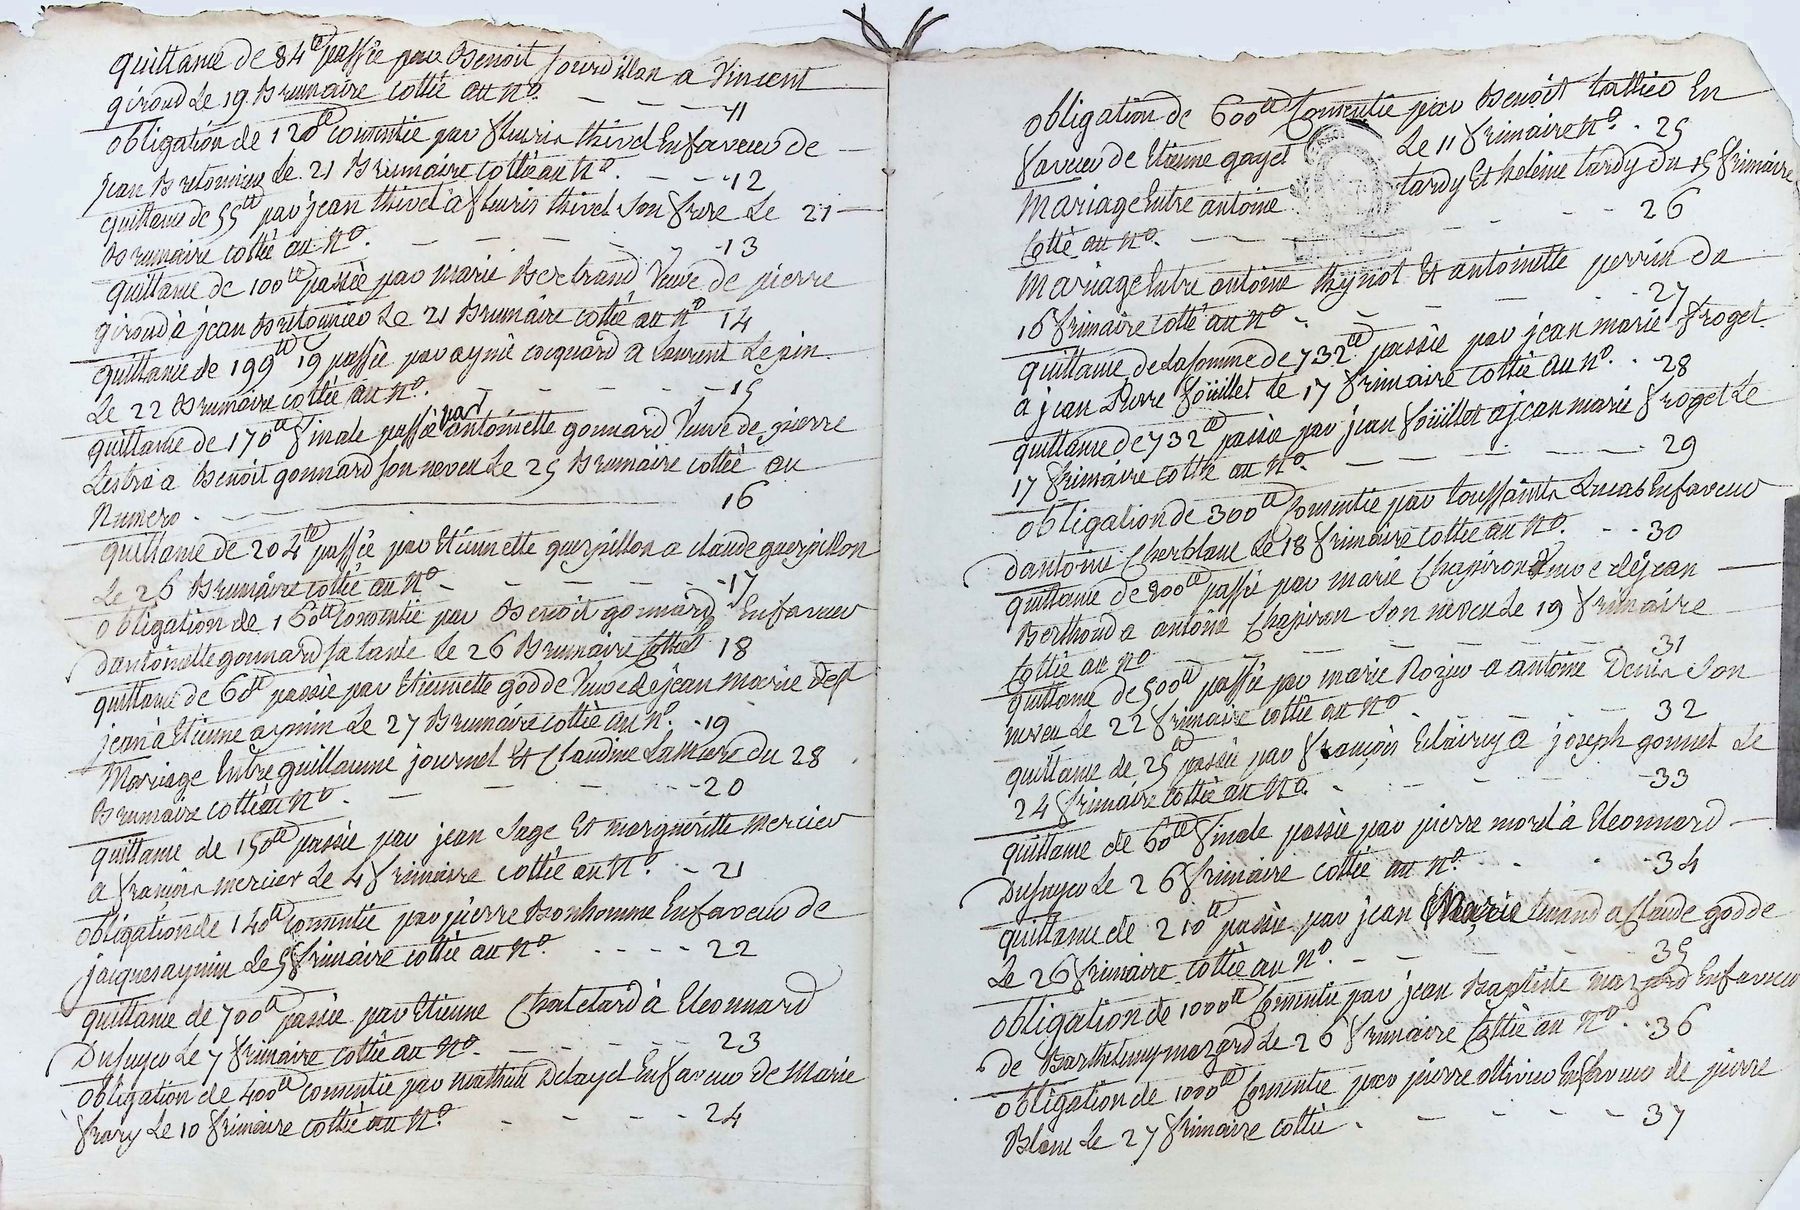 quittance de 84tt passée par Benoit Jourdillon a Vincent
giroud Le 19 Brumaire cottée au No. - - - 11
obligation de 120tt consentie par fleurin thivel Enfaveur de
jean Bretonnier le 21 Brumaire cottée au No. - - 12
quittance de 55tt par jean thivel a fleuris thivel son frere Le 21
Brumaire cottée au No. - - - 13
quittance de 100tt passée par marie Bertrand Veuve de pierre
giroud à jean Bretonnier Le 21 Brumaire cottée au No 14
quittance de 199tt 19 passée par aymé coquard a Laurent Lepin
Le 22 Brumaire cottée au No. - - - 15
quittance de 170tt finale passée par antoinette gonnard Veuve de pierre
Lestra a Benoit gonnard son neveu Le 25 Brumaire cottée au
Numero - 16
quittance de 204tt passée par Etiennette guerpillon a claude guerpillon
Le 26 Brumaire cottée au No - - - 17
obligation de 160tt consentie par Benoit gonnard Enfaveur
dantoinette gonnard sa tante le 26 Brumaire Cottée 18
quittance de 60tt passée par Etiennette godde Veuve de jean marie
jean à Etienne aymin Le 27 Brumaire cottée au No. - 19
Mariage Entre guillaume journet Et Claudine Lamure du 28
Brumaire cottée au No. - - - 20
quittance de 150tt passée par jean Sage Et marguerite mercier
a françois mercier Le 4 frimaire cottée au No. - 21
obligation de 140tt consentie par pierre Bonhomme Enfaveur de
jacques aymin Le 5 frimaire cottée au No. - - - - 22
quittance de 700tt passée par Etienne Chatelard à Leonnard
Dufuyeu Le 7 frimaire cottée au No. - - - 23
obligation de 400tt consentie par mathieu Delayet Enfaveur de Marie
frary Le 10 frimaire cottée au No - - - 24
obligation de 600tt Consentie par Benoit En
faveur de Etienne gayet Le 11 frimaire No. - 25
Mariage Entre antoine tardy Et helene tardy du 15 frimaire
Cotté au No. - - - 26
Mariage Entre antoine thynot Et antoinette perrin du
16 frimaire cotté au No - - - 27
quittance de la somme de 732tt passée par jean marie froget
a jean Pierre foüillet le 17 frimaire cottée au No. - 28
quittance de 732tt passée par jean foüillet a jean marie froget Le
17 frimaire cottée au No. - - - 29
obligation de 300tt Consentie par toussaint Lucas Enfaveur
dantoine Cherblanc Le 18 frimaire cottée au No. - - 30
quittance de 800tt passée par marie Chapiron Veuve de jean
Berthoud a antoine Chapiron son neveu Le 19 frimaire
Cottée au No - - - 31
quittance de 500tt passée par marie Rozier a antoine Denis son
neveu Le 22 frimaire cottée au No - - - 32
quittance de 25tt passée par françois a joseph gonnet Le
24 frimaire cottée au No. - - - 33
quittance de 60tt finale passée par pierre morel à Leonnard
Dufuyeu Le 26 frimaire cottée au No. - - - 34
quittance de 210tt passée par jean Marie a Claude godde
Le 26 frimaire cottée au No. - - - 35
obligation de 1000tt Consentie par jean Baptiste mazard Enfaveur
de Barthelemy mazard Le 26 frimaire Cottée au No - 36
obligation de 1000tt Consentie par pierre ollivier Enfaveur de pierre
Blanc Le 27 frimaire cottée - - - 37